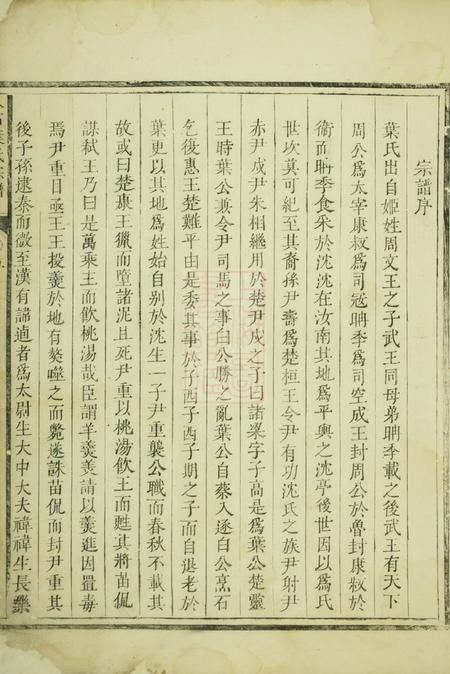 宗譜序
葉氏出自姬姓周文王之子武王同母弟聃季載之後武王有天下
周公爲太宰康叔爲司冦聃季爲司空成王封周公於魯封康叔於
衛而聃季食采於沈沈在汝南其地爲平輿之沈亭後世因以爲氏
世次莫可紀至其裔孫尹壽爲楚桓王令尹有功沈氏之族尹射尹
赤尹戍尹朱相繼用於楚尹戍之子曰諸梁字子高是爲葉公楚靈
王時葉公兼令尹司馬之事白公勝之亂葉公自蔡入逐白公烹石
乞復惠王楚難平由是委其事於子西子期之子而自退老於
葉更以其地爲姓始自别於沈生一子尹重襲公職而春秋不載其
故或曰楚康王獵而墮諸泥且死尹重以桃湯飲王而甦其將苗侃
謀弒王乃曰是萬乘主而飲桃湯哉臣謂羊羹羙請以羹進因置毒
焉尹重目亟王王投羹於地有獒噬之而斃遂誅苗侃而封尹重其
後子孫逮秦而微至漢有諦逈者爲太尉生大中大夫禕禕生長樂